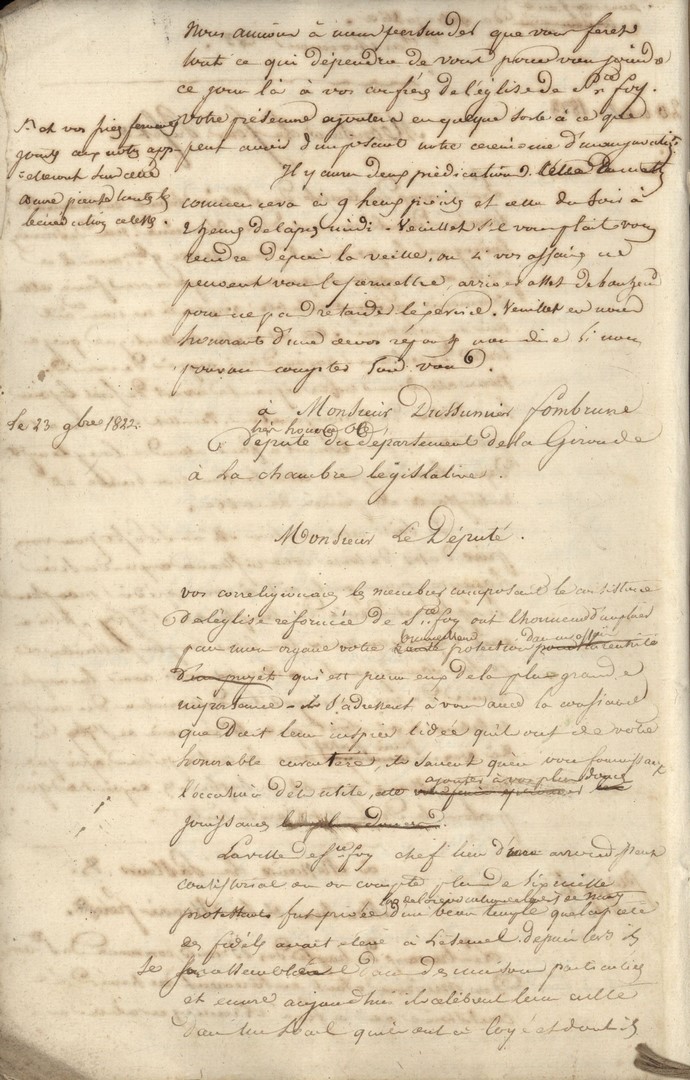 nous aimons à nous persuader que vous ferez
tout ce qui dépendra de vous pour vous joindre
ce jour là à vos confrères de l'église de Ste foy.
votre présence ajoutera en quelque sorte à ce que
peut avoir d'imposant notre cérémonie d'inauguration
St et vos prières ferventes
jointes aux notres app-
-elleront sur cette
œuvre pieuse toutes les
bénédictions célestes.
Il y aura deux prédications.
commencera à 9 heures précises et celle du soir à
2 heures de l'après midi. Veuillez s'il vous plait vous
rendre depuis la veille, ou si vos affaires ne
peuvent vous le permettre, arriver assez de bonheure
pour ne pas retarder le service. Veuillez en nous
honorant d'une de vos réponses nous dire si nous
pouvons compter sur vous.
le 23 9bre 1822.
à Monsieur Dussumier fombrune
très honorable
député du département de la Gironde
à La chambre législative.
Monsieur Le Député.
vos correligionnaires les membres composant le consistoire
De l'église reformée de Ste foy ont l'honneur d'implorer
par mon organe votre protection
d'un projet qui est pour eux de la plus grande
importance - ils s'adressent à vous avec la confiance
que doit leur inspirer l'idée qu'ils ont de votre
honorable caractère, ils savent qu'en vous fournissant
ajouter à vos plus douces
l'occasion d'être utile,
jouissances
La ville de Ste foy chef lieu d'un arrondissement
consistorial où on compte plus de six mille
protestants fut privée d'un beau temple que la piété
des fidèles avait élevé à l'éternel. depuis lors ils
se rassemblent dans des maisons particulières
et encore aujourd'hui ils célèbrent leur culte
dans un local qu'ils ont loyé et dont ils